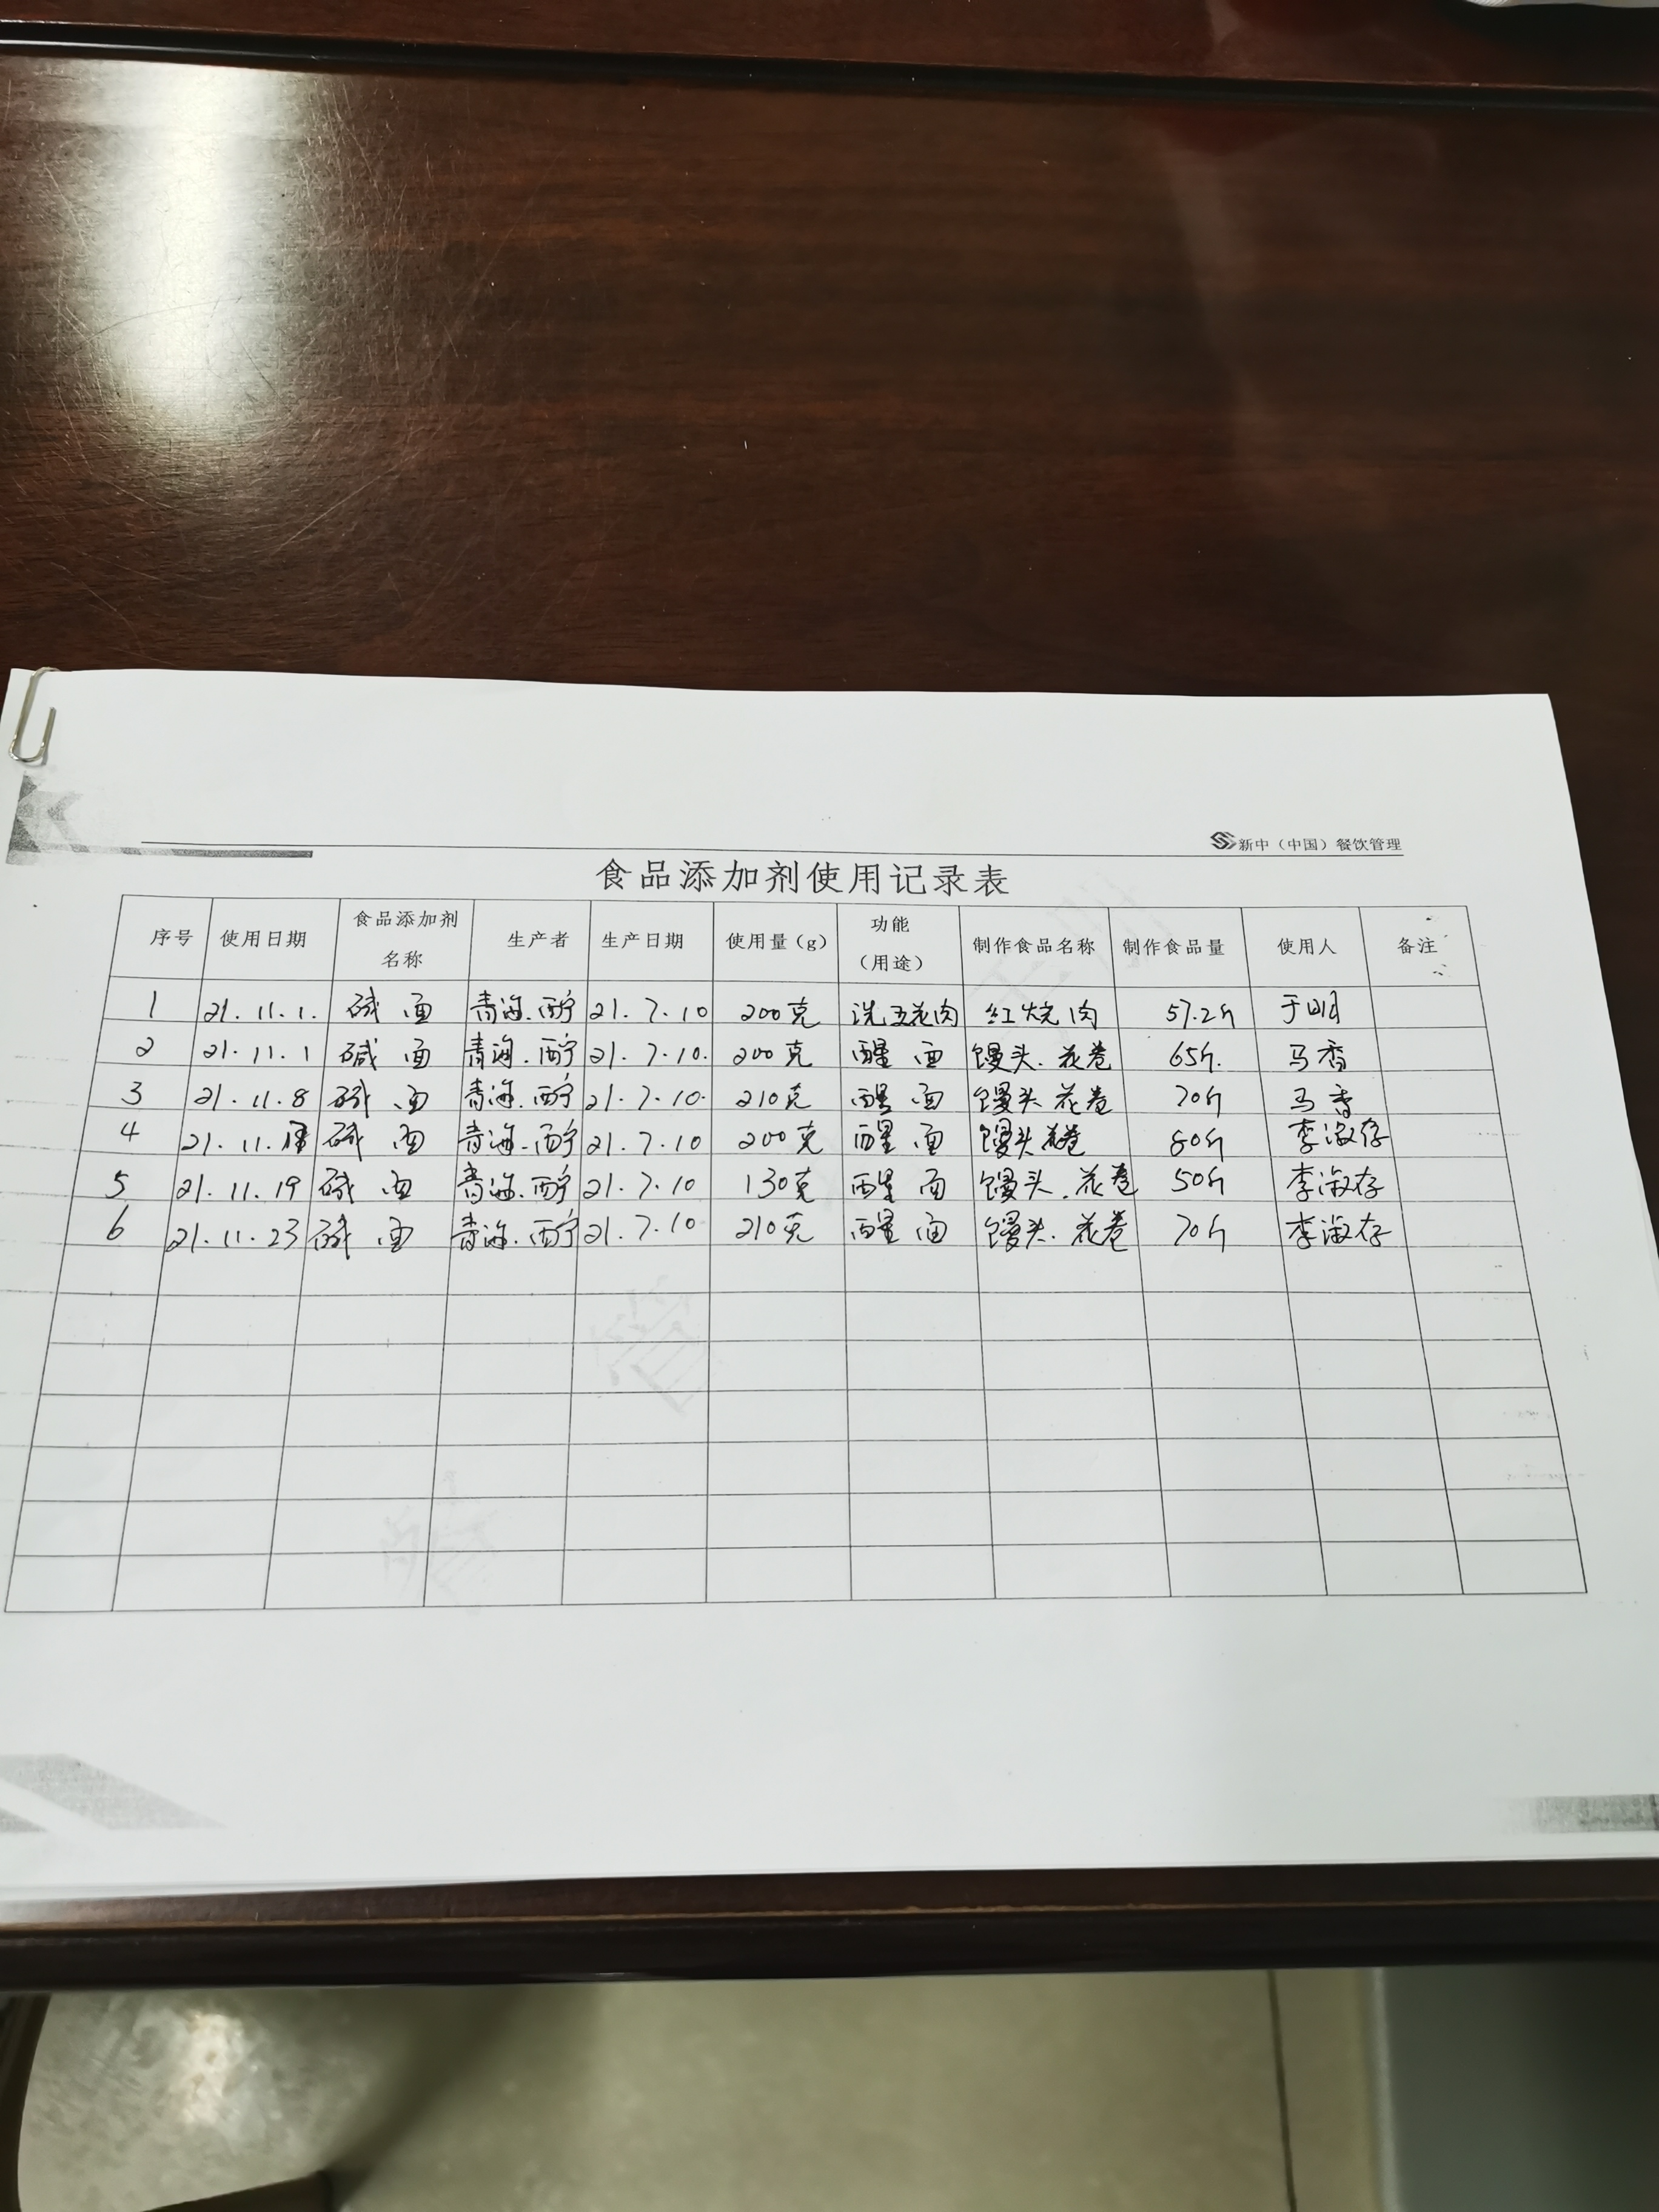 新中（中国）餐饮管理
食品添加剂使用记录表
序号 使用日期 食品添加剂名称 生产者 生产日期 使用量（g） 功能（用途） 制作食品名称 制作食品量 使用人 备注
1 21.11.1. 碱面 青海.西宁 21.7.10 200克 洗五花肉 红烧肉 57.2斤 于明
2 21.11.1 碱面 青海.西宁 21.7.10. 200克 醒面 馒头.花卷 65斤. 马香
3 21.11.8 碱面 青海.西宁 21.7.10. 210克 醒面 馒头 花卷 70斤 马香
4 21.11. 碱面 青海.西宁 21.7.10 200克 醒面 馒头花卷 80斤 李淑存
5 21.11.19 碱面 青海.西宁 21.7.10 130克 醒面 馒头.花卷 50斤 李淑存
6 21.11.23 碱面 青海.西宁 21.7.10 210克 醒面 馒头.花卷 70斤 李淑存
管